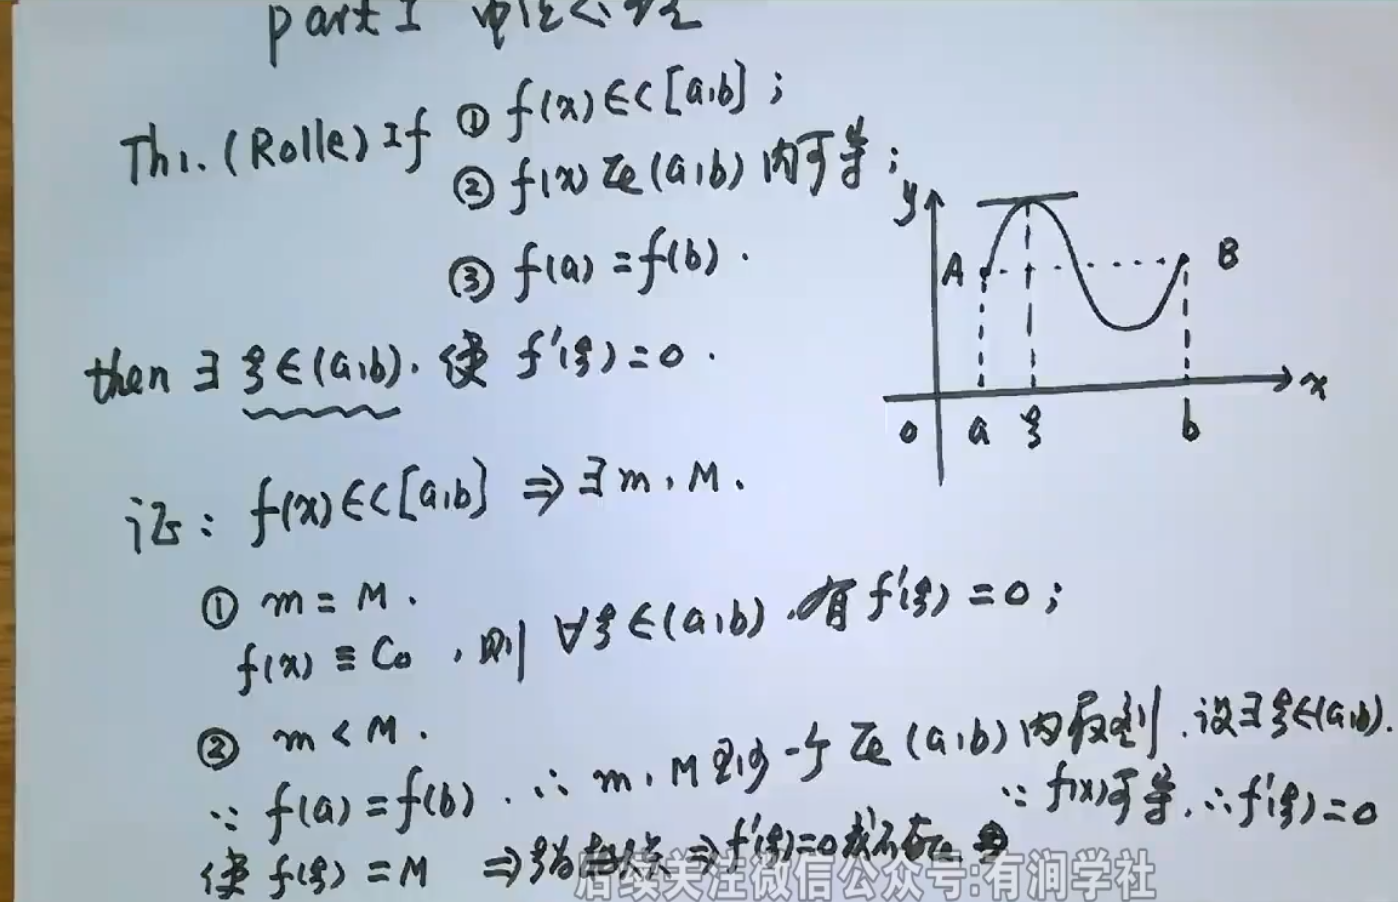 part I 中值定理
Th1. (Rolle) If ① f(x)∈C[a,b];
② f(x)在(a,b)内可导;
③ f(a)=f(b).
then ∃ ξ∈(a,b), 使 f'(ξ)=0.
y
A
B
x
0
a
ξ
b
证: f(x)∈C[a,b] ⇒ ∃ m, M.
① m=M.
f(x)≡C₀, 则 ∀ξ∈(a,b), 有 f'(ξ)=0;
② m<M.
∵ f(a)=f(b). ∴ m, M 至少一个在(a,b)内取到. 设∃ξ∈(a,b).
使 f(ξ)=M ⇒ξ为极值点⇒f'(ξ)=0或不存在.
∵ f(x)可导, ∴f'(ξ)=0
后续关注微信公众号:有润学社